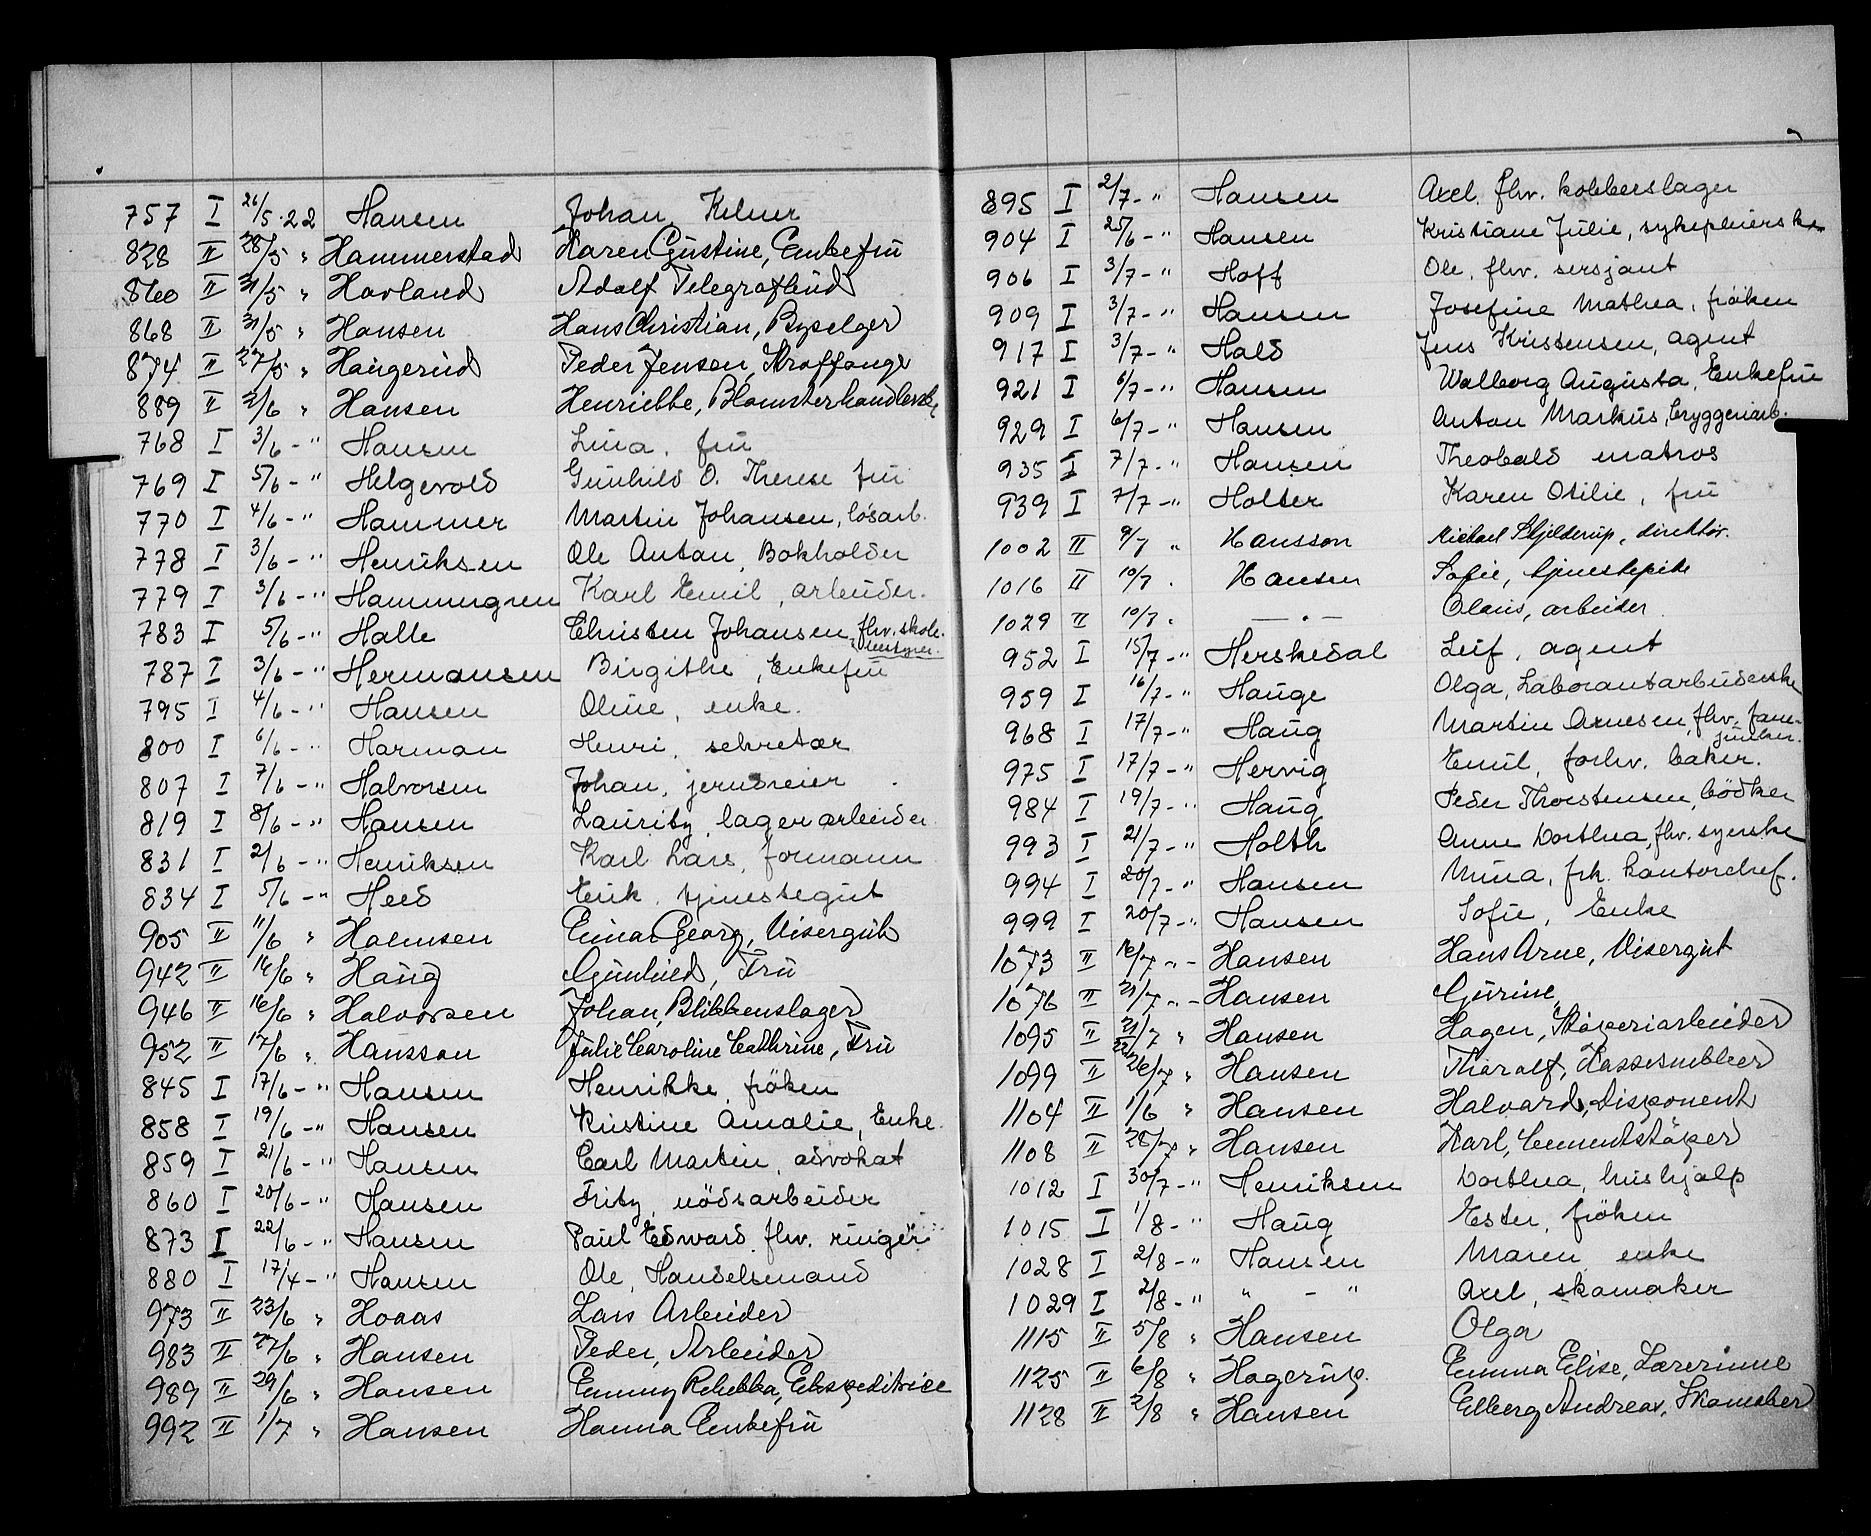 757 I 26/5-22 Hansen Johan Kelner
828 II 28/5 " Hammerstad Karen Gustine, Enkefru
860 II 31/5 " Havland Adolf Telegrafbud
868 II 31/5 " Hansen Hans Christian, Byselger
874 II 27/5 " Haugerud Peder Jensen, Straffange
889 II 2/6 " Hansen Henriette, Blomsterhandlerske
768 I 3/6 - " Hansen Lina, fru
769 I 5/6 - " Helgevold Gunhild O. Therese fru
770 I 4/6 - " Hammer Martin Johansen, løsarb.
778 I 3/6 - " Henriksen Ole Anton, Bokholder
779 I 3/6 - " Hammergren Karl Emil, arbeider.
783 I 5/6 - " Halle Christen Johansen, fhv. skole-
bestyrer.
787 I 3/6 - " Hermansen Birgithe, Enkefru
795 I 4/6 - " Hansen Oline, enke.
800 I 6/6 - " Harman Henri, sekretær
807 I 7/6 - " Halvorsen Johan, jerndreier
819 I 8/6 - " Hansen Lauritz, lagerarbeider
831 I 2/6 - " Henriksen Karl Lars, formann
834 I 5/6 - " Heed Erik, tjenestegut
905 II 11/6 " Halmsen Einar Georg, Visergut
942 II 14/6 " Haug Gunhild, Fru
946 II 16/6 " Halvorsen Johan, Blikkenslager
952 II 17/6 " Hansson Julie Caroline Cathrine, Fru
845 I 17/6 - " Hansen Henrikke, frøken
858 I 19/6 - " Hansen Kristine Amalie, Enke.
859 I 21/6 - " Hansen Carl Martin, advokat
860 I 20/6 - " Hansen Fritz, nødsarbeider
873 I 22/6 - " Hansen Paul Edvard, fhv. ringer
880 I 17/4 - " Hansen Ole, Handelsmand
973 II 23/6 " Hoaas Lars Arbeider
983 II 27/6 " Hansen Peder, Arbeider
989 II 29/6 " Hansen Emmy Rebekka, Ekspeditrice
992 II 1/7 " Hansen Hanna Enkefru
895 I 2/7 - " Hansen Axel, fhv. kobberslager
904 I 25/6 - " Hansen Kristiane Julie, sykepleierske
906 I 3/7 - " Hoff Ole, fhv. sersjant
909 I 3/7 - " Hansen Josefine Mathea, frøken
917 I 3/7 - " Hals Jens Kristensen, agent
921 I 6/7 - " Hansen Walborg Augusta, Enkefru
929 I 6/7 - " Hansen Anton Markus, bryggeriarb.
935 I 7/7 - " Hansen Theobald matros
939 I 7/7 - " Holter Karen Otilie, fru
1002 II 9/7 " Hansson Michael Skjelderup, direktør.
1016 II 10/7 . Hansen Sofie, tjenestepike
1029 II 10/7 . — " — Olaus, arbeider
952 I 15/7 - " Herskedal Leif, agent
959 I 16/7 - " Hauge Olga, Laborantarbeiderske
968 I 17/7 - " Haug Martin Arnesen, fhv. fane-
junker.
975 I 17/7 - " Hervig Emil, forhv. baker.
984 I 19/7 - " Haug Peder Thorstensen, bødker
993 I 21/7 - " Holth Anne Dorthea, fhv. syerske
994 I 20/7 - " Hansen Mina, frk. kontorchef.
999 I 20/7 - " Hansen Sofie, Enke
1073 II 16/7 " - Hansen Hans Arne, Visergut
1076 II 21/7 " - Hansen Gurine
1095 II 21/7 " Hansen Hagen, Støperiarbeider
1099 II 26/7 " Hansen Thoralf, Kassesnekker
1104 II 1/6 " Hansen Halvard, Disponent
1108 II 28/7 " Hansen Karl, Cementstøper
1012 I 30/7 - " Henriksen Dorthea, hushjelp
1015 I 1/8 - " Haug Ester, frøken
1028 I 2/8 - " Hansen Maren enke
1029 I 2/8 - " " - " Axel, skomaker
1115 II 5/8 " Hansen Olga
1125 II 6/8 " Hagerup. Emma Elise, Lærerinne
1128 II 2/8 " Hansen Elberg Andreas, Skomaker